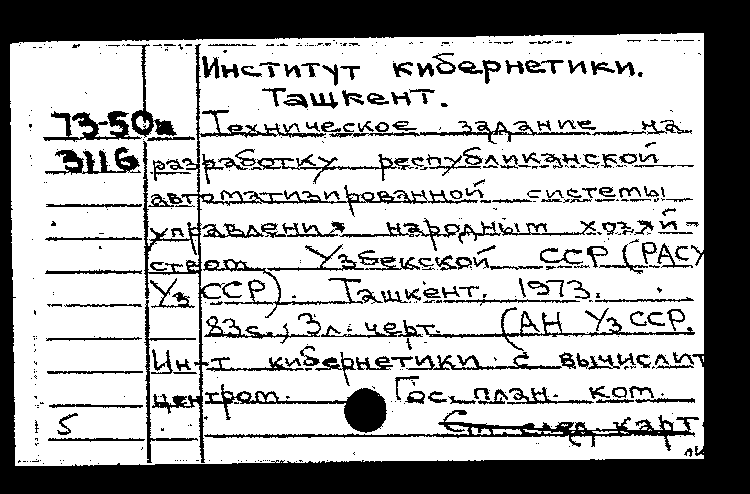 Институт кибернетики.
Ташкент.
73-50м Техническое задание на
3116 разработку республиканской
автоматизированной системы
управления народным хозяй-
ством Узбекской ССР (РАСУ
Уз ССР). Ташкент, 1973.
83с., 3л. черт. (АН УзССР.
Ин-т кибернетики с вычислит
центром. Гос. план. ком.
5 См. след. карт